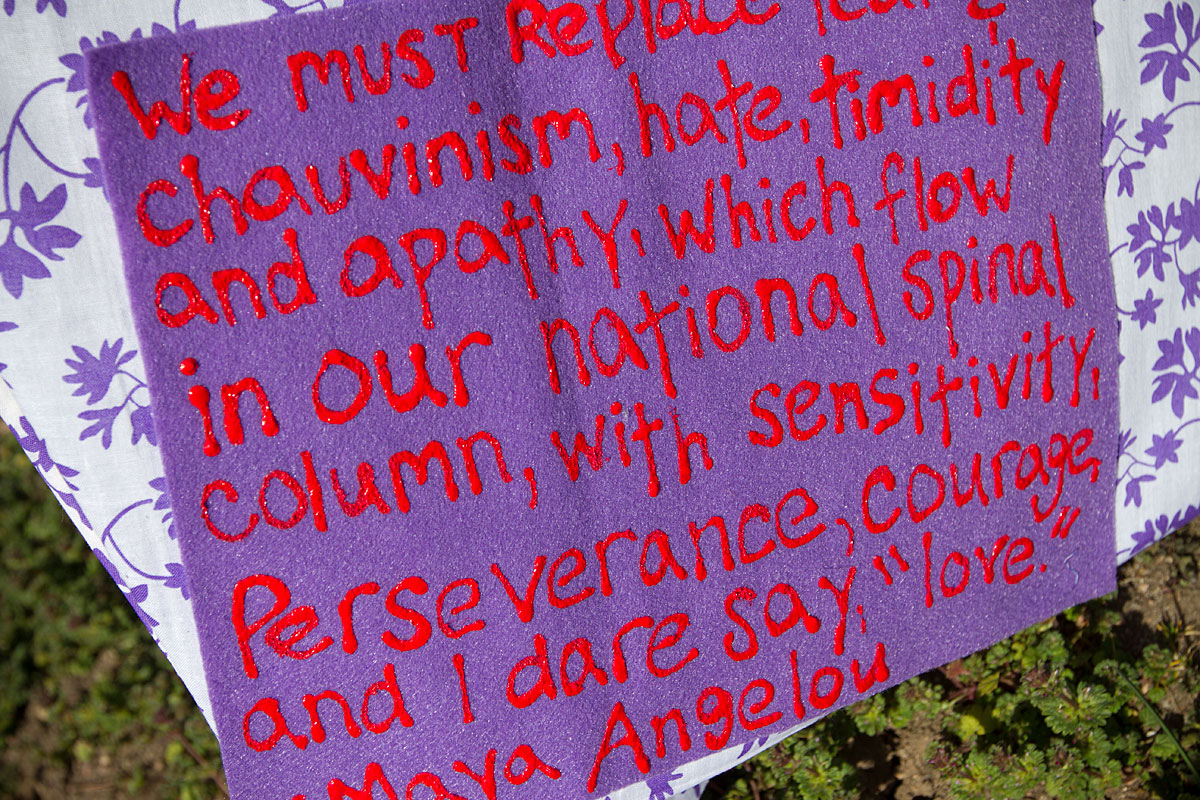 We must Replace fear &
chauvinism, hate, timidity
and apathy, which flow
in our national spinal
column, with sensitivity,
Perseverance, courage,
and I dare say, "love."
Maya Angelou